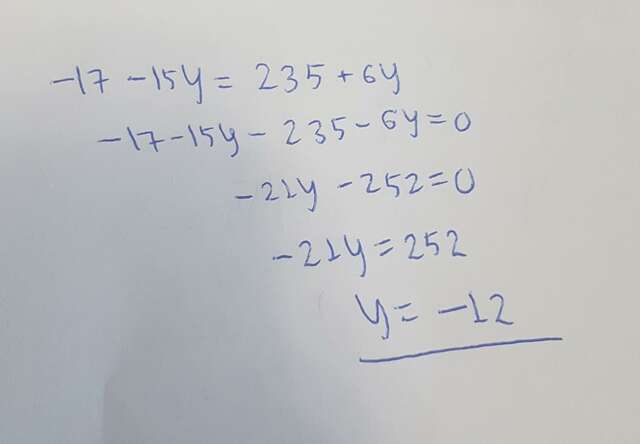 -17 -15y = 235 + 6y
-17-15y - 235 - 6y = 0
-21y - 252 = 0
-21y = 252
y = -12